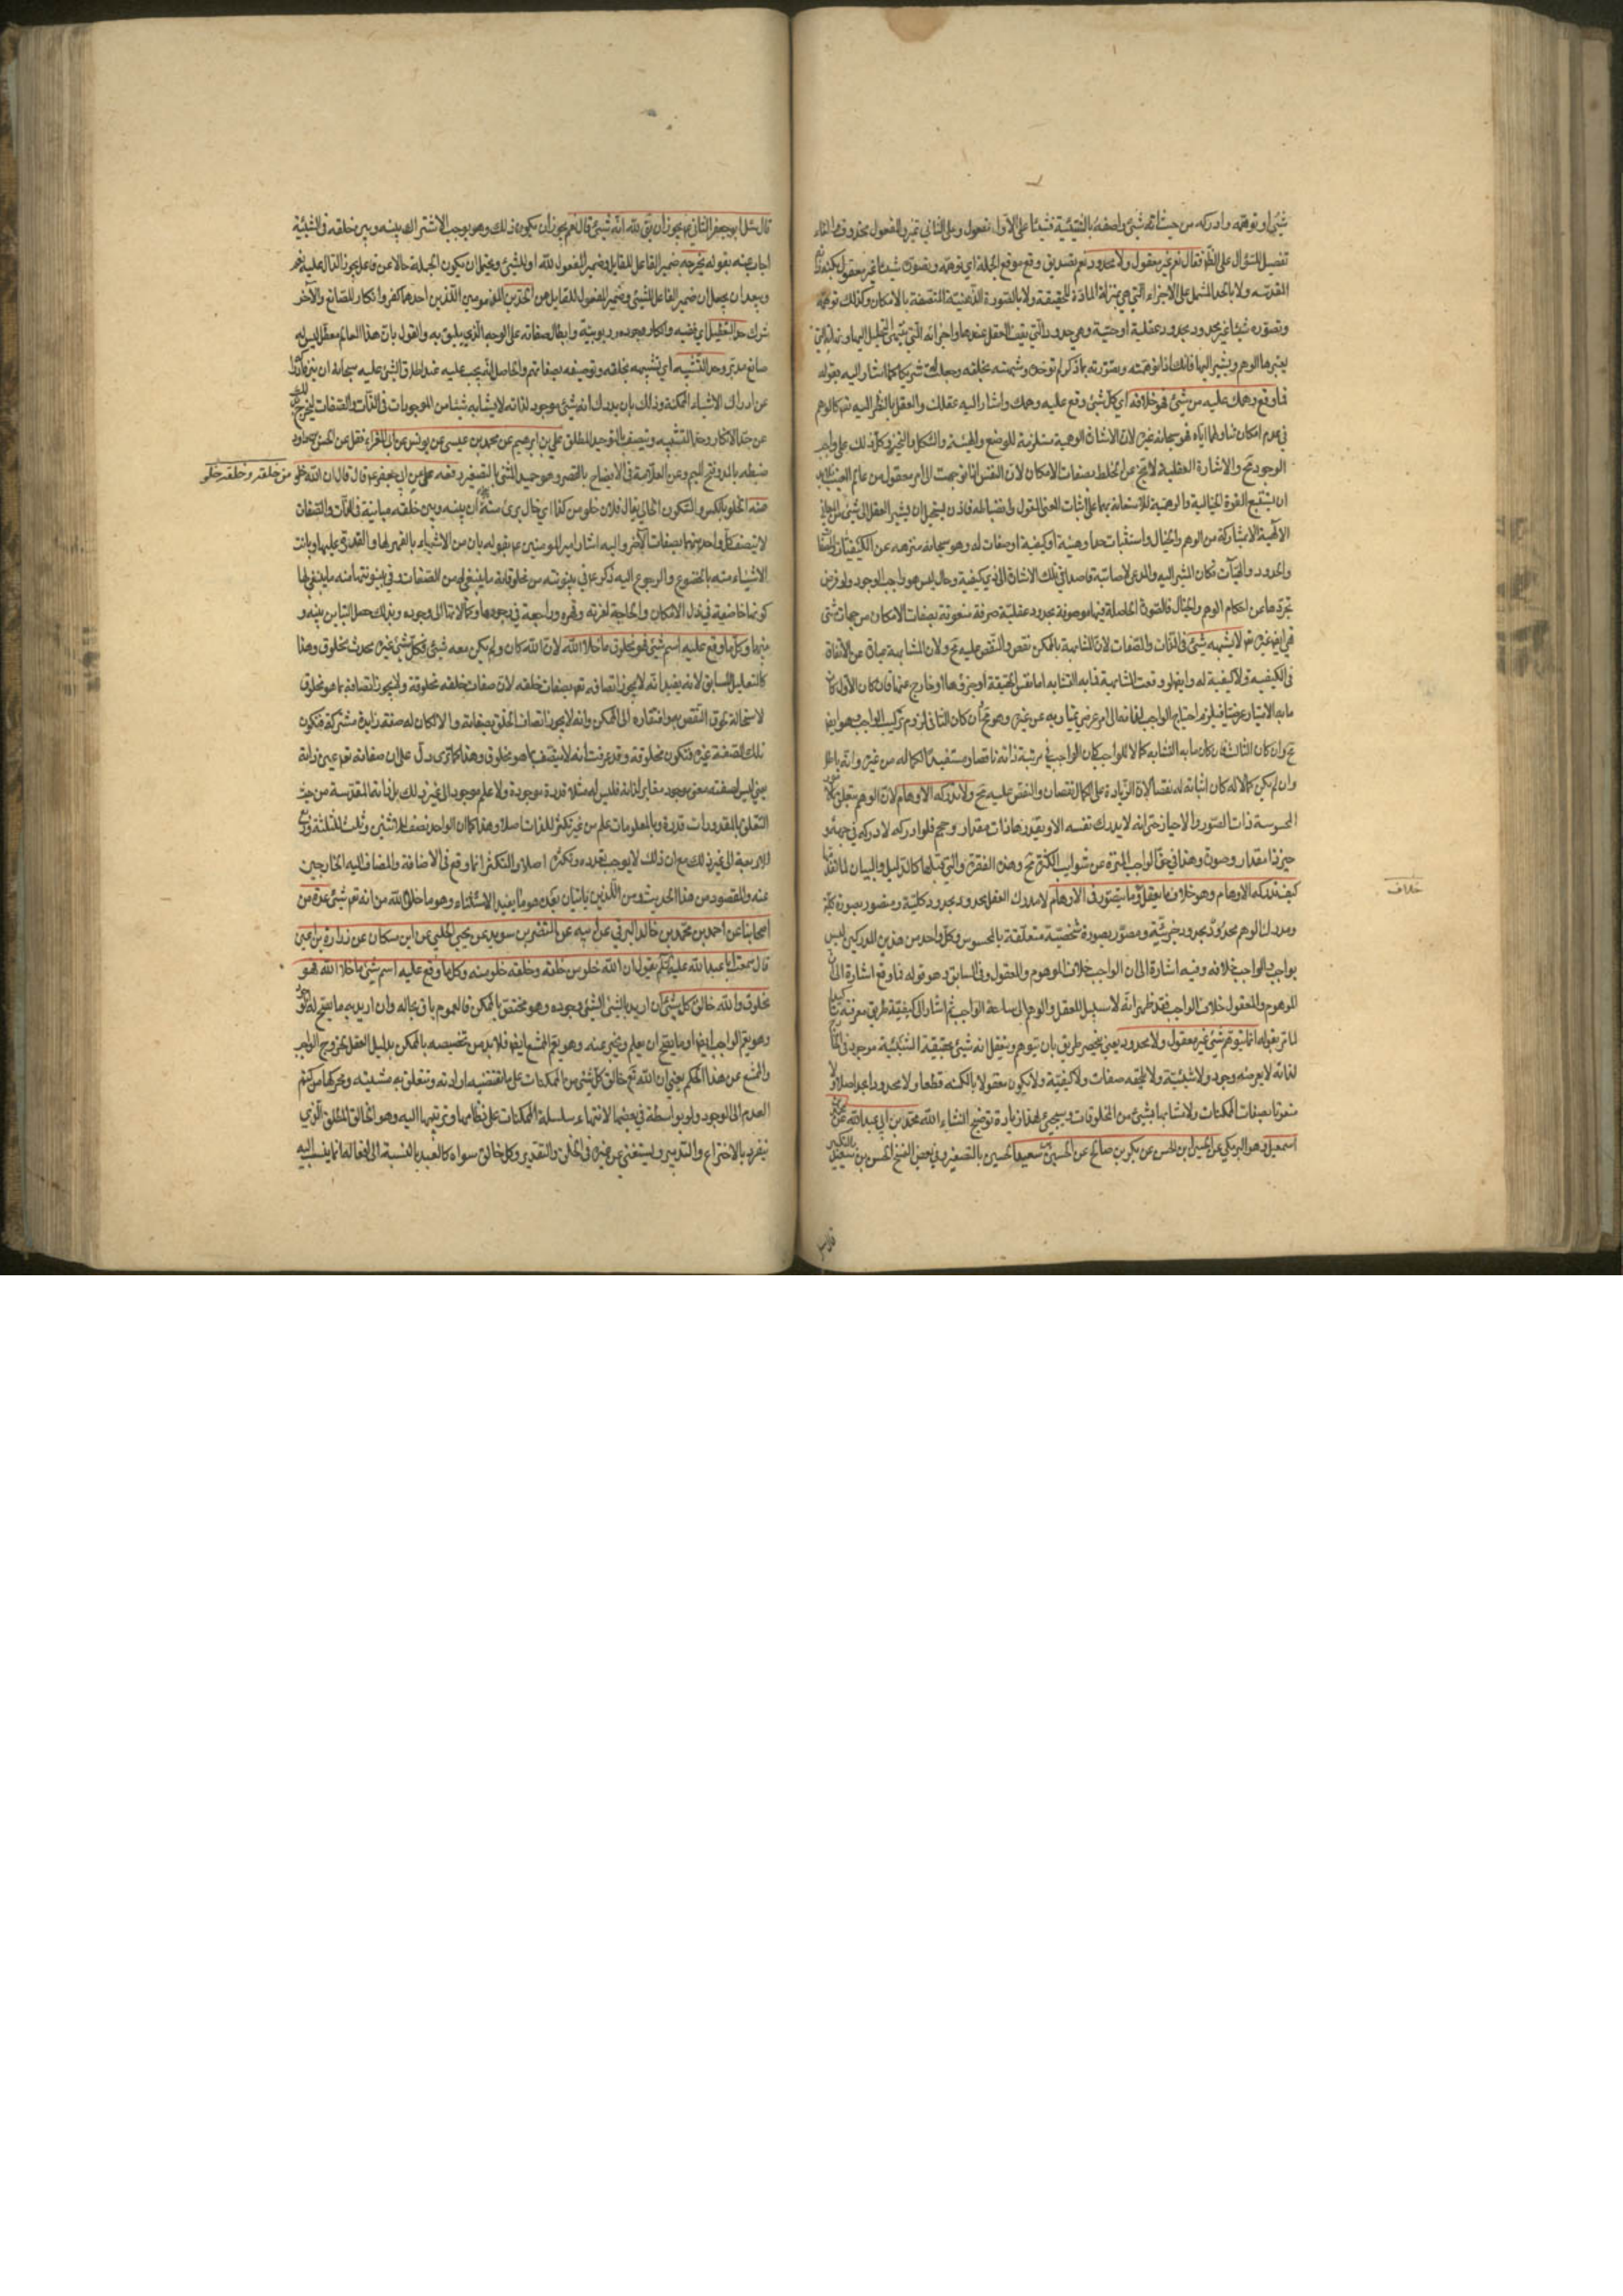 شيئا او توهمه وادركه من حيث انه شئ واصفه بالشيئية فشيئا على الاول مفعول وعلى الثاني تميز والمفعول محذوف
تفصيل للسؤال فقال نعم غير معقول ولا محدود نعم تصديق وقع موقع الجملة اي توهمه وتصوره شيئا غير معقول بكنه
المقدسة ولا بالحد المشتمل على الاجزاء التي هي بمنزلة المادة للحقيقة ولا بالصورة الذهنية المتصفة بالامكان وكذلك توهمه
وتصوره شيئا غير محدود بحدود عقلية او حسية وهي حدود التي يقف العقل عندها واجزائه التي ينتهي التحليل اليها
يعتبرها الوهم ويشير اليها فانك اذا توهمته وتصورته بما ذكر لم توحده وشبهته بخلقه وجعلت له شريكا كما اشار اليه بقوله
فما وقع وهمك عليه من شئ فهو خلافه اي كل شئ وقع عليه وهمك واشار اليه عقلك والعقل بالنظر اليه كالوهم
في عدم امكان تناولهما اياه فهو سبحانه غيره لان الاشارة الوهمية مستلزمة للوضع والهيئة والشكل والتحيز وكل ذلك على واجب
الوجود مح والاشارة العقلية لا تخ عن الخلط بصفات الامكان لان النفس اذا توجهت الى امر معقول من عالم الغيب فلا بد
ان يستتبع القوة الخيالية والوهمية للاستعانة بهما على اثبات المعنى المعقول وانضباطه فاذن يستحيل ان يشير العقل الى شئ من المعاني
الالهية الا بشاركة من الوهم والخيال واستثبات حد او هيئة او كيفية او صفات له وهو سبحانه منزه عن الكيفيات والصفات
والحدود والهيآت فكان المشير اليه والمدعي لاصابته قاصدا في تلك الاشارة الى ذي كيفية وحال ليس هو واجب الوجود ولو فرض
تجردها من احكام الوهم والخيال فالصورة الحاصلة فيها موصوفة بحدود عقلية صرفة منعوتة بصفات الامكان من جهات شتى
فهي ايض غيره تع لا يشبهه شئ في الذات والصفات لان المشابهة بالممكن نقص والنقص عليه مح ولان المشابهة عبارة عن الاتفاق
في الكيفية ولا كيفية له وايض لو وقعت المشابهة فما به التشابه اما نفس الحقيقة او جزؤها او خارج عنها فان كان الاول كان
ما به الامتياز عرضيا فيلزم احتياج الواجب لذاته الى امر عرضي يمتاز به عن غيره وهو مح وان كان الثاني لزم تركيب الواجب وهو ايض
مح وان كان الثالث فان كان ما به التشابه كمالا للواجب كان الواجب في مرتبة ذاته ناقصا ومستفيدا لكماله من غيره وانه باطل
وان لم يكن كمالا له كان اثباته له نقصا لان الزيادة على الكمال نقصان والنقص عليه مح ولا تدركه الاوهام لان الوهم يتعلق
المحسوسة ذات الصور والاحياز حتى انه لا يدرك نفسه الا ويقدرها ذات مقدار وحجم فلو ادركه لادركه في جهة و
حيز ذا مقدار وصورة وهذا في حق الواجب المنزه عن شوائب الكثرة مح وهذه الفقرة والتي قبلها كالدليل والبيان لما تقدم
كيف تدركه الاوهام وهو خلاف ما يعقل وما يتصور في الاوهام لا مدرك العقل محدود بحدود كلية ومتصور بصورة كلية
ومدرك الوهم محدود بحدود جزئية ومصور بصورة شخصية متعلقة بالمحسوس وكل واحد من هذين المدركين ليس
بواجب والواجب خلافه وفيه اشارة الى ان الواجب خلاف الموهوم والمعقول وفي السابق وهو قوله فما وقع اشارة الى ان
الموهوم والمعقول خلاف الواجب فقد ظهر انه لا سبيل للعقل والوهم الى ساحة الواجب ثم اشار الى كيفية طريق معرفته
لما مر بقوله انما يتوهم شئ غير معقول ولا محدود يعني ينحصر طريق بان يتوهم ويتعقل انه شئ بحقيقة الشيئية موجود
لذاته لا يعرضه وجود ولا شيئية ولا تلحقه صفات ولا كيفية ولا يكون معقولا بالكنه قطعا ولا محدودا بحد اصلا ولا
منعوتا بصفات الممكنات ولا مشابها بشئ من المخلوقات وسيجئ لهذا زيادة توضيح انشاء الله محمد بن ابي عبد الله عن
اسمعيل وهو البرمكي عن الحسين بن الحسن عن بكر بن صالح عن الحسين بن سعيد الحسين بالتصغير وفي بعض النسخ الحسن بن سعيد بالتكبير
خلاف
قال سئل ابو جعفر الثاني ع يجوز ان يق لله انه شئ قال نعم يجوز ان يكون ذلك وهو يوجب الاشتراك بينه وبين خلقه في الشيئية
اجاب عنه بقوله يخرجه ضمير الفاعل للقايل وضمير المفعول لله او للشئ ويحتمل ان يكون الجملة حالا عن فاعل يجوز الدال عليه نعم
ويبعد ان يجعل ضمير الفاعل للشئ وضمير المفعول للقايل من الحدين المذمومين اللذين احدهما كفر وانكار للصانع والآخر
شرك حد التعطيل اي نفيه وانكار وجوده وربوبيته وابطال صفاته على الوجه الذي يليق به والقول بان هذا العالم معطل ليس له
صانع مدبر وحد التشبيه اي تشبيهه بخلقه وتوصيفه بصفاتهم والحاصل انه يجب عليه عند اطلاق الشئ عليه سبحانه ان
عن ادراك الاشياء الممكنة وذلك بان يدرك انه شئ موجود لذاته لا يشابه شيئا من الموجودات في الذات والصفات ليخرج
عن حد الانكار وحد التشبيه ويتصف بالتوحيد المطلق علي بن ابرهيم عن محمد بن عيسى عن يونس عن ابي المغراء نقل عن
ضبطه بالمد وفتح الميم وعن العلامة في الايضاح بالقصر وهو حميد بن المثنى بالتصغير رفعه عن ابي جعفر ع قال قال ان الله خلو من خلقه وخلقه خلو
منه الخلو بالكسر والسكون الخالي يقال فلان خلو من كذا اي خال برئ منه اي ان بينه وبين خلقه مباينة في الذات والصفات
لا يتصف كل واحد منهما بصفات الآخر واليه اشار امير المؤمنين ع بقوله بان من الاشياء بالقهر لها والقدرة عليها وبانت
الاشياء منه بالخضوع والرجوع اليه ذكر ع في بينونته من مخلوقاته ما ينبغي له من الصفات وفي بينونتها منه ما ينبغي لها
كونها خاضعة في ذل الامكان والحاجة لعزته وقهره وراجعة في وجودها وكمالاتها الى وجوده وبذلك حصل التباين بينه و
بينها وكل ما وقع عليه اسم شئ فهو مخلوق ما خلا الله لان الله كان ولم يكن معه شئ فكل شئ غيره محدث مخلوق وهذا
كالتعليل للسابق لانه يفيد انه لا يجوز اتصافه تع بصفات خلقه لان صفات خلقه مخلوقة ولا يجوز اتصافه بما هو مخلوق
لاستحالة لحوق النقص به وافتقاره الى الممكن وانه لا يجوز اتصاف الخلق بصفاته والا لكان له صفة زايدة مشتركة فتكون
تلك الصفة غيره فتكون مخلوقة وقد عرفت انه لا يتصف بما هو مخلوق وهذا كما ترى دل على ان صفاته تع عين ذاته
يعني ليس لصفته معنى موجود مغاير لذاته فليس له مثلا قدرة موجودة ولا علم موجود الى غير ذلك بل ذاته المقدسة من حيث
التعلق بالمقدورات قدرة وبالمعلومات علم من غير تكثر للذات اصلا وهذا كما ان الواحد نصف الاثنين وثلث للثلثة وربع
للاربعة الى غير ذلك مع ان ذلك لا يوجب تعدده وتكثره اصلا والتكثر انما وقع في الاضافة والمضاف اليه الخارجين
عنه والمقصود من هذا الحديث ومن اللذين ياتيان بعده هو ما يفيد الاستثناء وهو ما خلا الله من انه تع شئ عدة من
اصحابنا عن احمد بن محمد بن خالد البرقي عن ابيه عن النضر بن سويد عن يحيى الحلبي عن ابن مسكان عن زرارة بن اعين
قال سمعت ابا عبد الله عليه السلم يقول ان الله خلو من خلقه وخلقه خلو منه وكل ما وقع عليه اسم شئ ما خلا الله فهو
مخلوق والله خالق كل شئ ان اريد بالشئ الشئ وجوده وهو مختص بالممكن فالعموم باق بحاله وان اريد به ما يصح له الوجود
وهو يعم الواجب ايضا او ما يصح ان يعلم ويخبر عنه وهو يعم الممتنع ايضا فلا بد من تخصيصه بالممكن بدليل العقل بخروج الواجب
والممتنع عن هذا الحكم يعني ان الله تع خالق كل شئ من الممكنات على ما تقتضيه ارادته وتتعلق به مشيته ومخرجها من كتم
العدم الى الوجود ولو بواسطة في بعضها لانتهاء سلسلة الممكنات على نظامها وترتيبها اليه وهو الخالق المطلق الذي
ينفرد بالاختراع والتدبير ويستغني عن غيره في الخلق والتقدير وكل خالق سواه كالعبد بالنسبة الى افعاله انما ينسب اليه